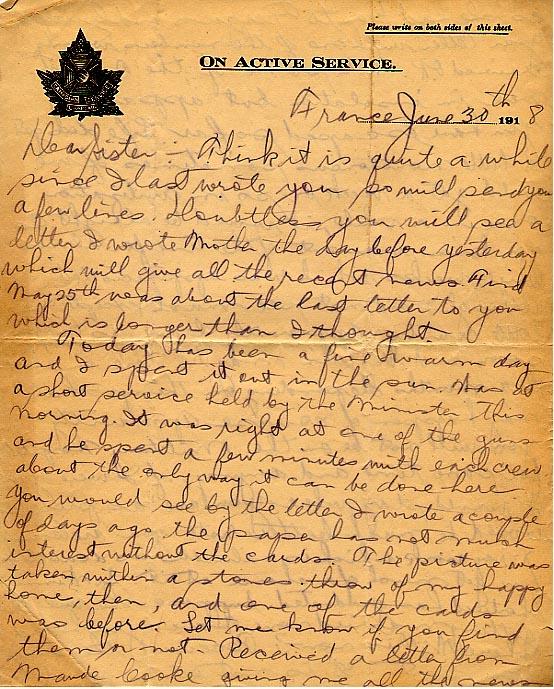 Please write on both sides of this sheet.
ON ACTIVE SERVICE.
France June 30th 1918
Dear Sister:- Think it is quite a while
since I last wrote you so will send you
a few lines. Doubtless you will see a
letter I wrote Mother the day before yesterday
which will give all the recent news. Find
May 25th was about the last letter to you
which is longer than I thought.
Today has been a fine warm day
and I spent it out in the sun. Was at
a short service held by the Minister this
morning. It was right at one of the guns
and he spent a few minutes with each crew
about the only way it can be done here.
You would see by the letter I wrote a couple
of days ago the paper has not much
interest without the cards. The picture was
taken within a stones throw of my happy
home, then, and one of the cards
was before. Let me know if you find
them or not. Received a letter from
Maude Cooke giving me all the news